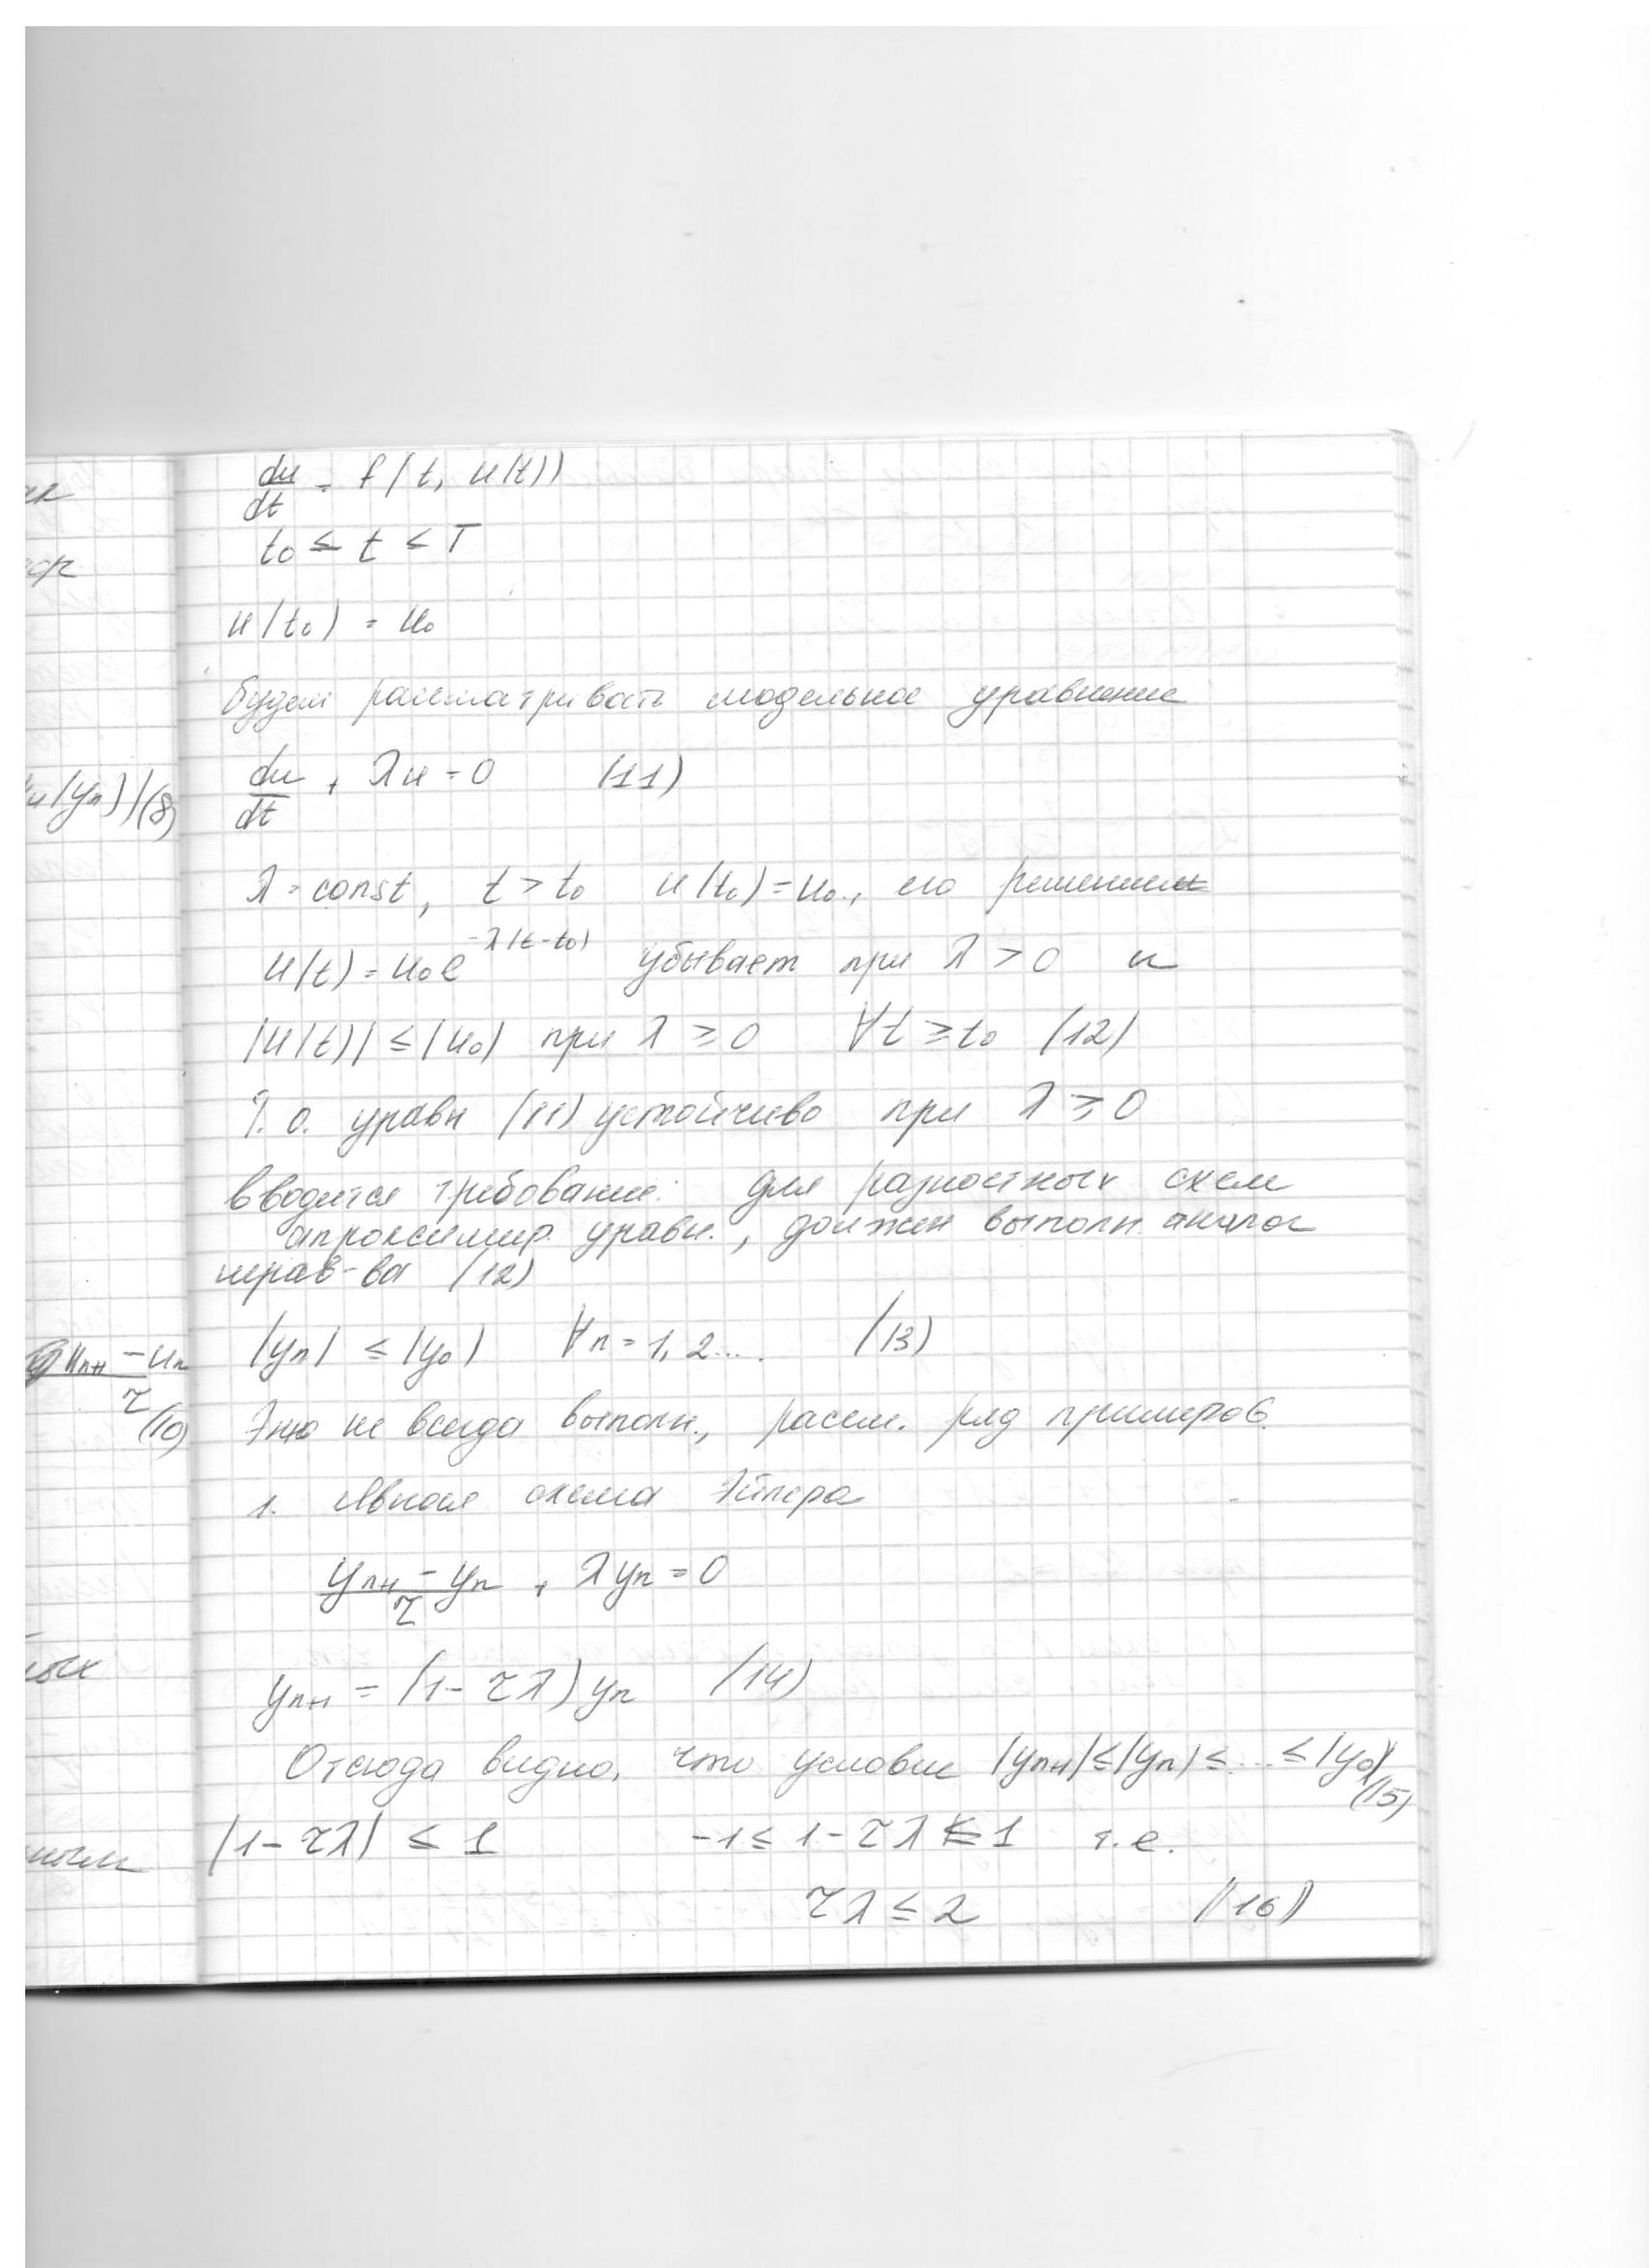 du/dt = f(t, u(t))
t₀ ≤ t ≤ T
u(t₀) = u₀
Будем рассматривать модельное уравнение
du/dt + λu = 0 (11)
λ = const, t > t₀ u(t₀) = u₀, его решение
u(t) = u₀e^(-λ(t-t₀)) убывает при λ > 0 и
|u(t)| ≤ |u₀| при λ ≥ 0 ∀t ≥ t₀ (12)
Т.о. уравн (11) устойчиво при λ ≥ 0
Вводится требование: для разностных схем
апроксимир. уравн., должен выполн. аналог
нерав-ва (12)
|yₙ| ≤ |y₀| ∀n = 1, 2.... (13)
Это не всегда выполн., рассм. ряд примеров.
1. Явная схема Эйлера
(yₙ₊₁ - yₙ)/τ + λyₙ = 0
yₙ₊₁ = (1 - τλ)yₙ (14)
Отсюда видно, что условие |yₙ₊₁| ≤ |yₙ| ≤ ... ≤ |y₀| (15)
|1 - τλ| ≤ 1 -1 ≤ 1 - τλ ≤ 1 т.е.
τλ ≤ 2 (16)
(8)
uₙ₊₁ - uₙ
τ
(10)